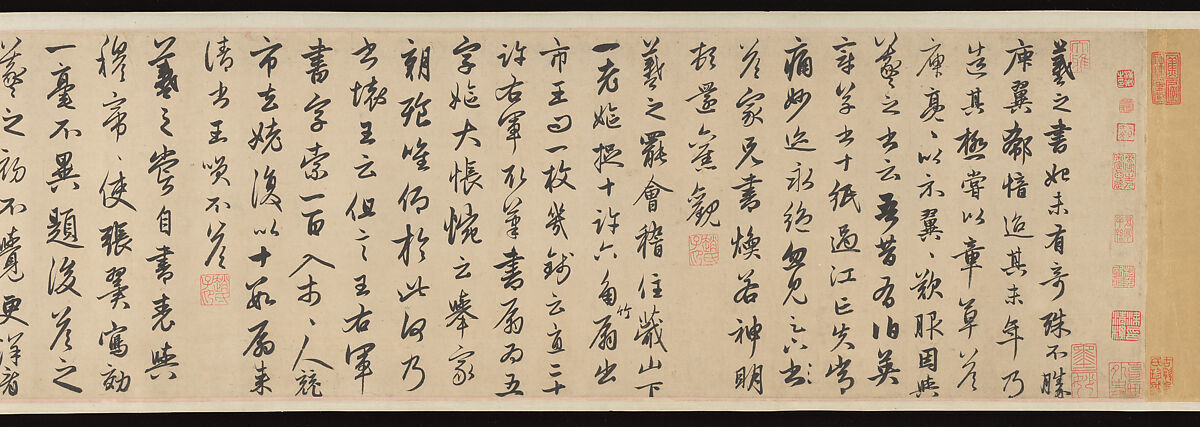 羲之書初未有奇殊不勝
庾翼郗愔迨其末年乃
造其極嘗以章草答
庾亮〻以示翼〻歎服因與
羲之書云吾昔有伯英
章草書十紙過江亡失常
痛妙迹永絕忽見足下書
答家兄書煥若神明
頓還舊觀
趙氏子昂
羲之罷會稽住蕺山下
一老嫗捉十許六角竹扇出
市王問一枚幾錢云直二十
許右軍取筆書扇為五
字嫗大悵惋云舉家
朝飡唯仰於此何乃
書壞王云但言王右軍
書字索一百入市〻人競
市去姥復以十數扇來
請書王笑不答
趙氏子昂
羲之嘗自書表與
穆帝〻使張翼寫効
一毫不異題後答之
羲之初不覺更詳看